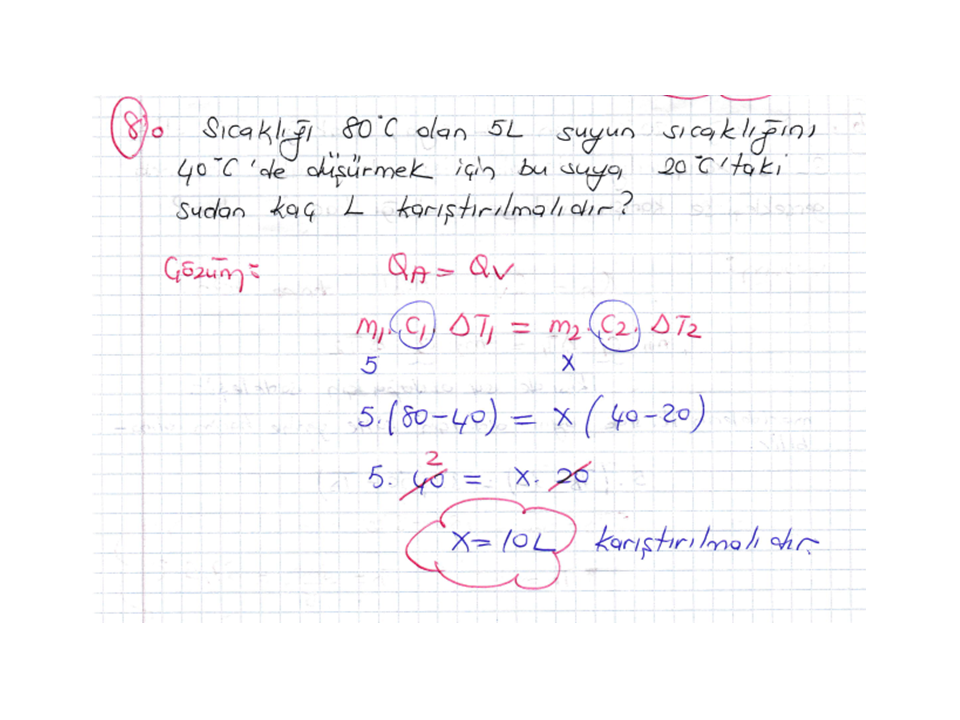 8. Sıcaklığı 80°C olan 5L suyun sıcaklığını
40°C'de düşürmek için bu suya 20°C'taki
sudan kaç L karıştırılmalıdır?
Çözüm= QA = QV
m1. C1 ΔT1 = m2. C2. ΔT2
5 x
5.(80-40) = x (40-20)
2
5. 40 = x. 20
x = 10L karıştırılmalıdır.